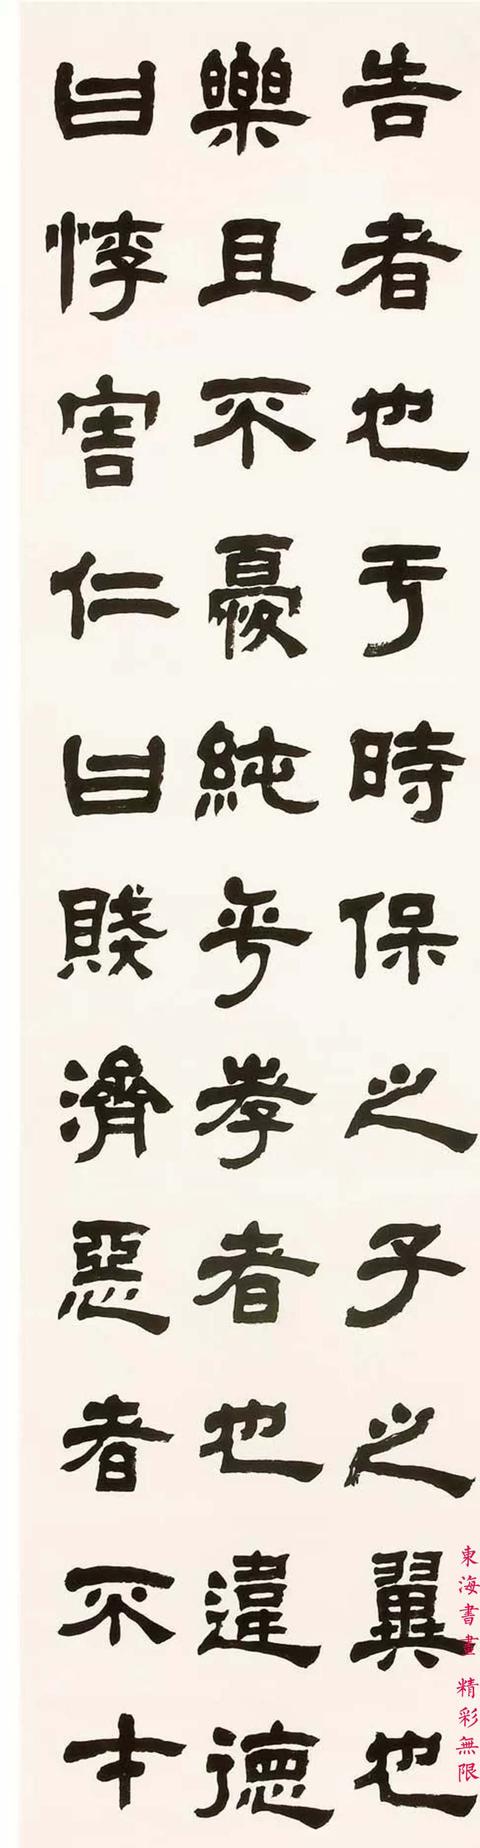 告者也于時保之子之翼也
樂且不憂純乎孝者也違德
曰悖害仁曰賊濟惡者不才
東海書畫 精彩無限